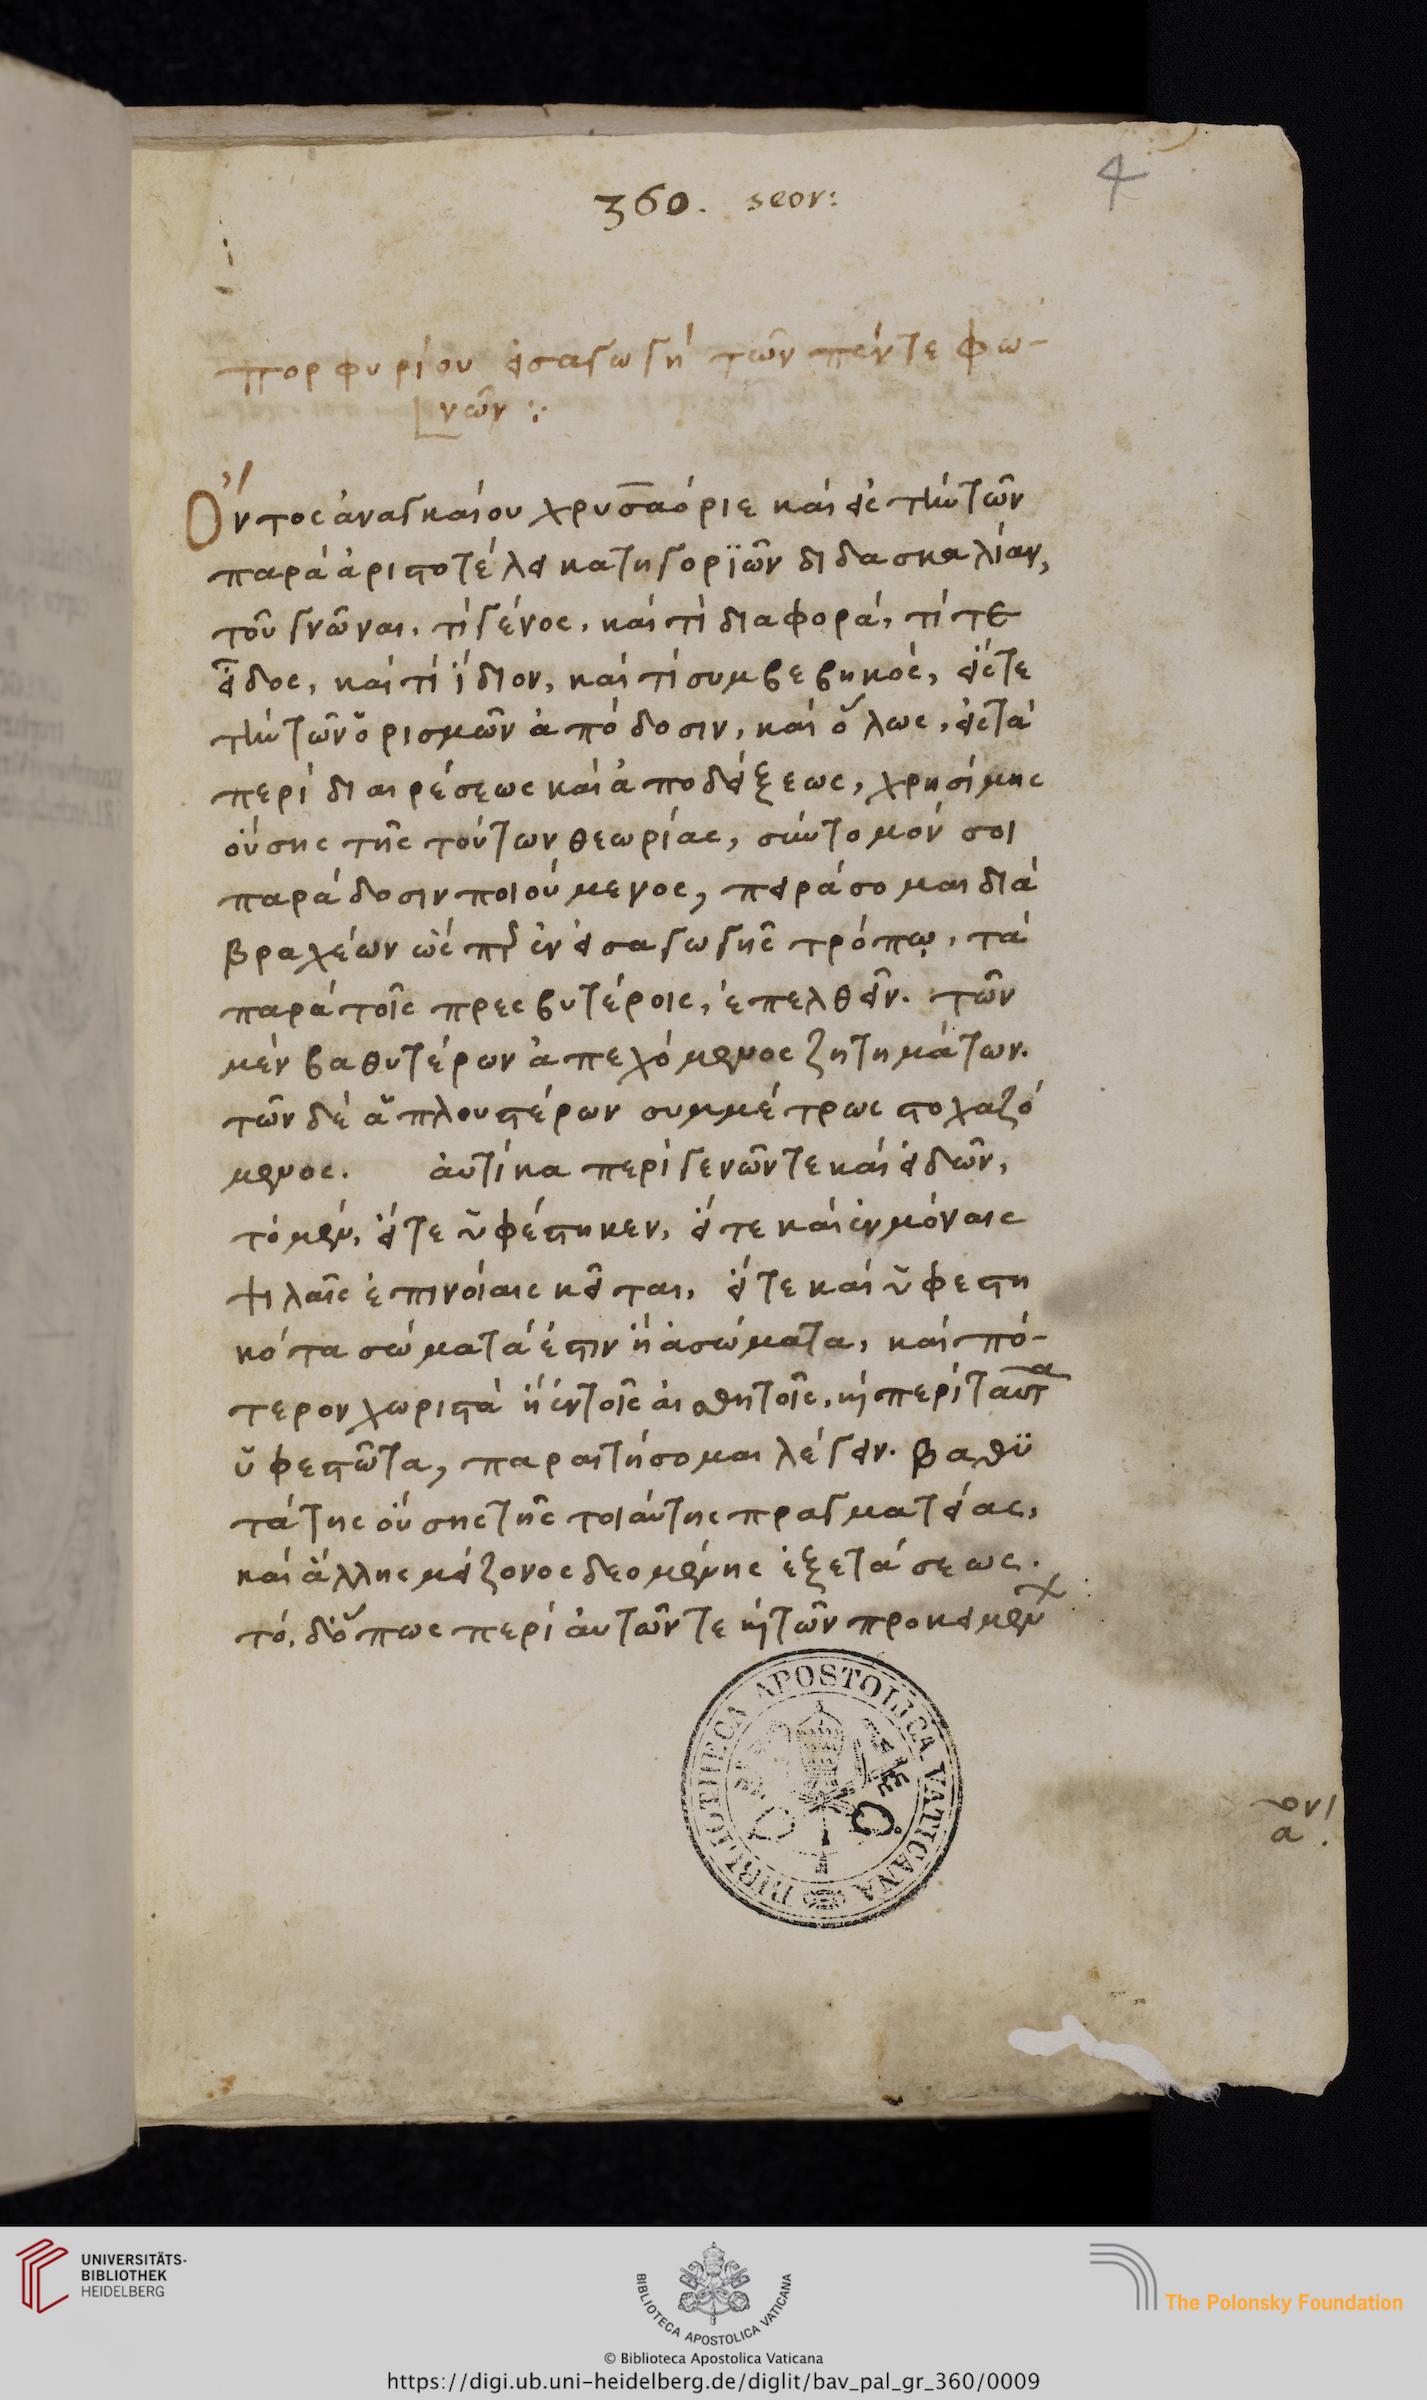 360. seor:
4
πορφυρίου εἰσαγωγή τῶν πέντε φω-
νῶν :
Ὄντος ἀναγκαίου χρυσαόριε καὶ εἰς τὴν τῶν
παρὰ ἀριστοτέλει κατηγορϊῶν διδασκαλίαν,
τοῦ γνῶναι, τί γένος, καὶ τί διαφορά, τί τε
εἶδος, καὶ τί ἴδιον, καὶ τί συμβεβηκός, εἴς τε
τὴν τῶν ὁρισμῶν ἀπόδοσιν, καὶ ὅλως, εἰς τὰ
περὶ διαιρέσεως καὶ ἀποδείξεως, χρησίμης
οὔσης τῆς τούτων θεωρίας, σύντομόν σοι
παράδοσιν ποιούμενος, πειράσομαι διὰ
βραχέων ὡς περ ἐν εἰσαγωγῆς τρόπῳ, τὰ
παρὰ τοῖς πρεσβυτέροις, ἐπελθεῖν. τῶν
μὲν βαθυτέρων ἀπεχόμενος ζητημάτων.
τῶν δὲ ἁπλουστέρων συμμέτρως στοχαζό
μενος. αὐτίκα περὶ γενῶν τε καὶ εἰδῶν,
τὸ μὲν, εἴτε ὑφέστηκεν, εἴτε καὶ ἐν μόναις
ψιλαῖς ἐπινοίαις κεῖται, εἴτε καὶ ὑφεστη
κότα σώματά ἐστιν ἢ ἀσώματα, καὶ πό-
τερον χωριστὰ ἢ ἐν τοῖς αἰσθητοῖς, καὶ περὶ ταῦτα
ὑφεστῶτα, παραιτήσομαι λέγειν. βαθϋ
τάτης οὔσης τῆς τοιαύτης πραγματείας,
καὶ ἄλλης μείζονος δεομένης ἐξετάσεως.
τό, δ' ὅπως περὶ αὐτῶν τε καὶ τῶν προκειμένων
α.
BIBLIOTHECA APOSTOLICA VATICANA
UNIVERSITÄTS-
BIBLIOTHEK
HEIDELBERG
BIBLIOTECA APOSTOLICA VATICANA
The Polonsky Foundation
© Biblioteca Apostolica Vaticana
https://digi.ub.uni-heidelberg.de/diglit/bav_pal_gr_360/0009